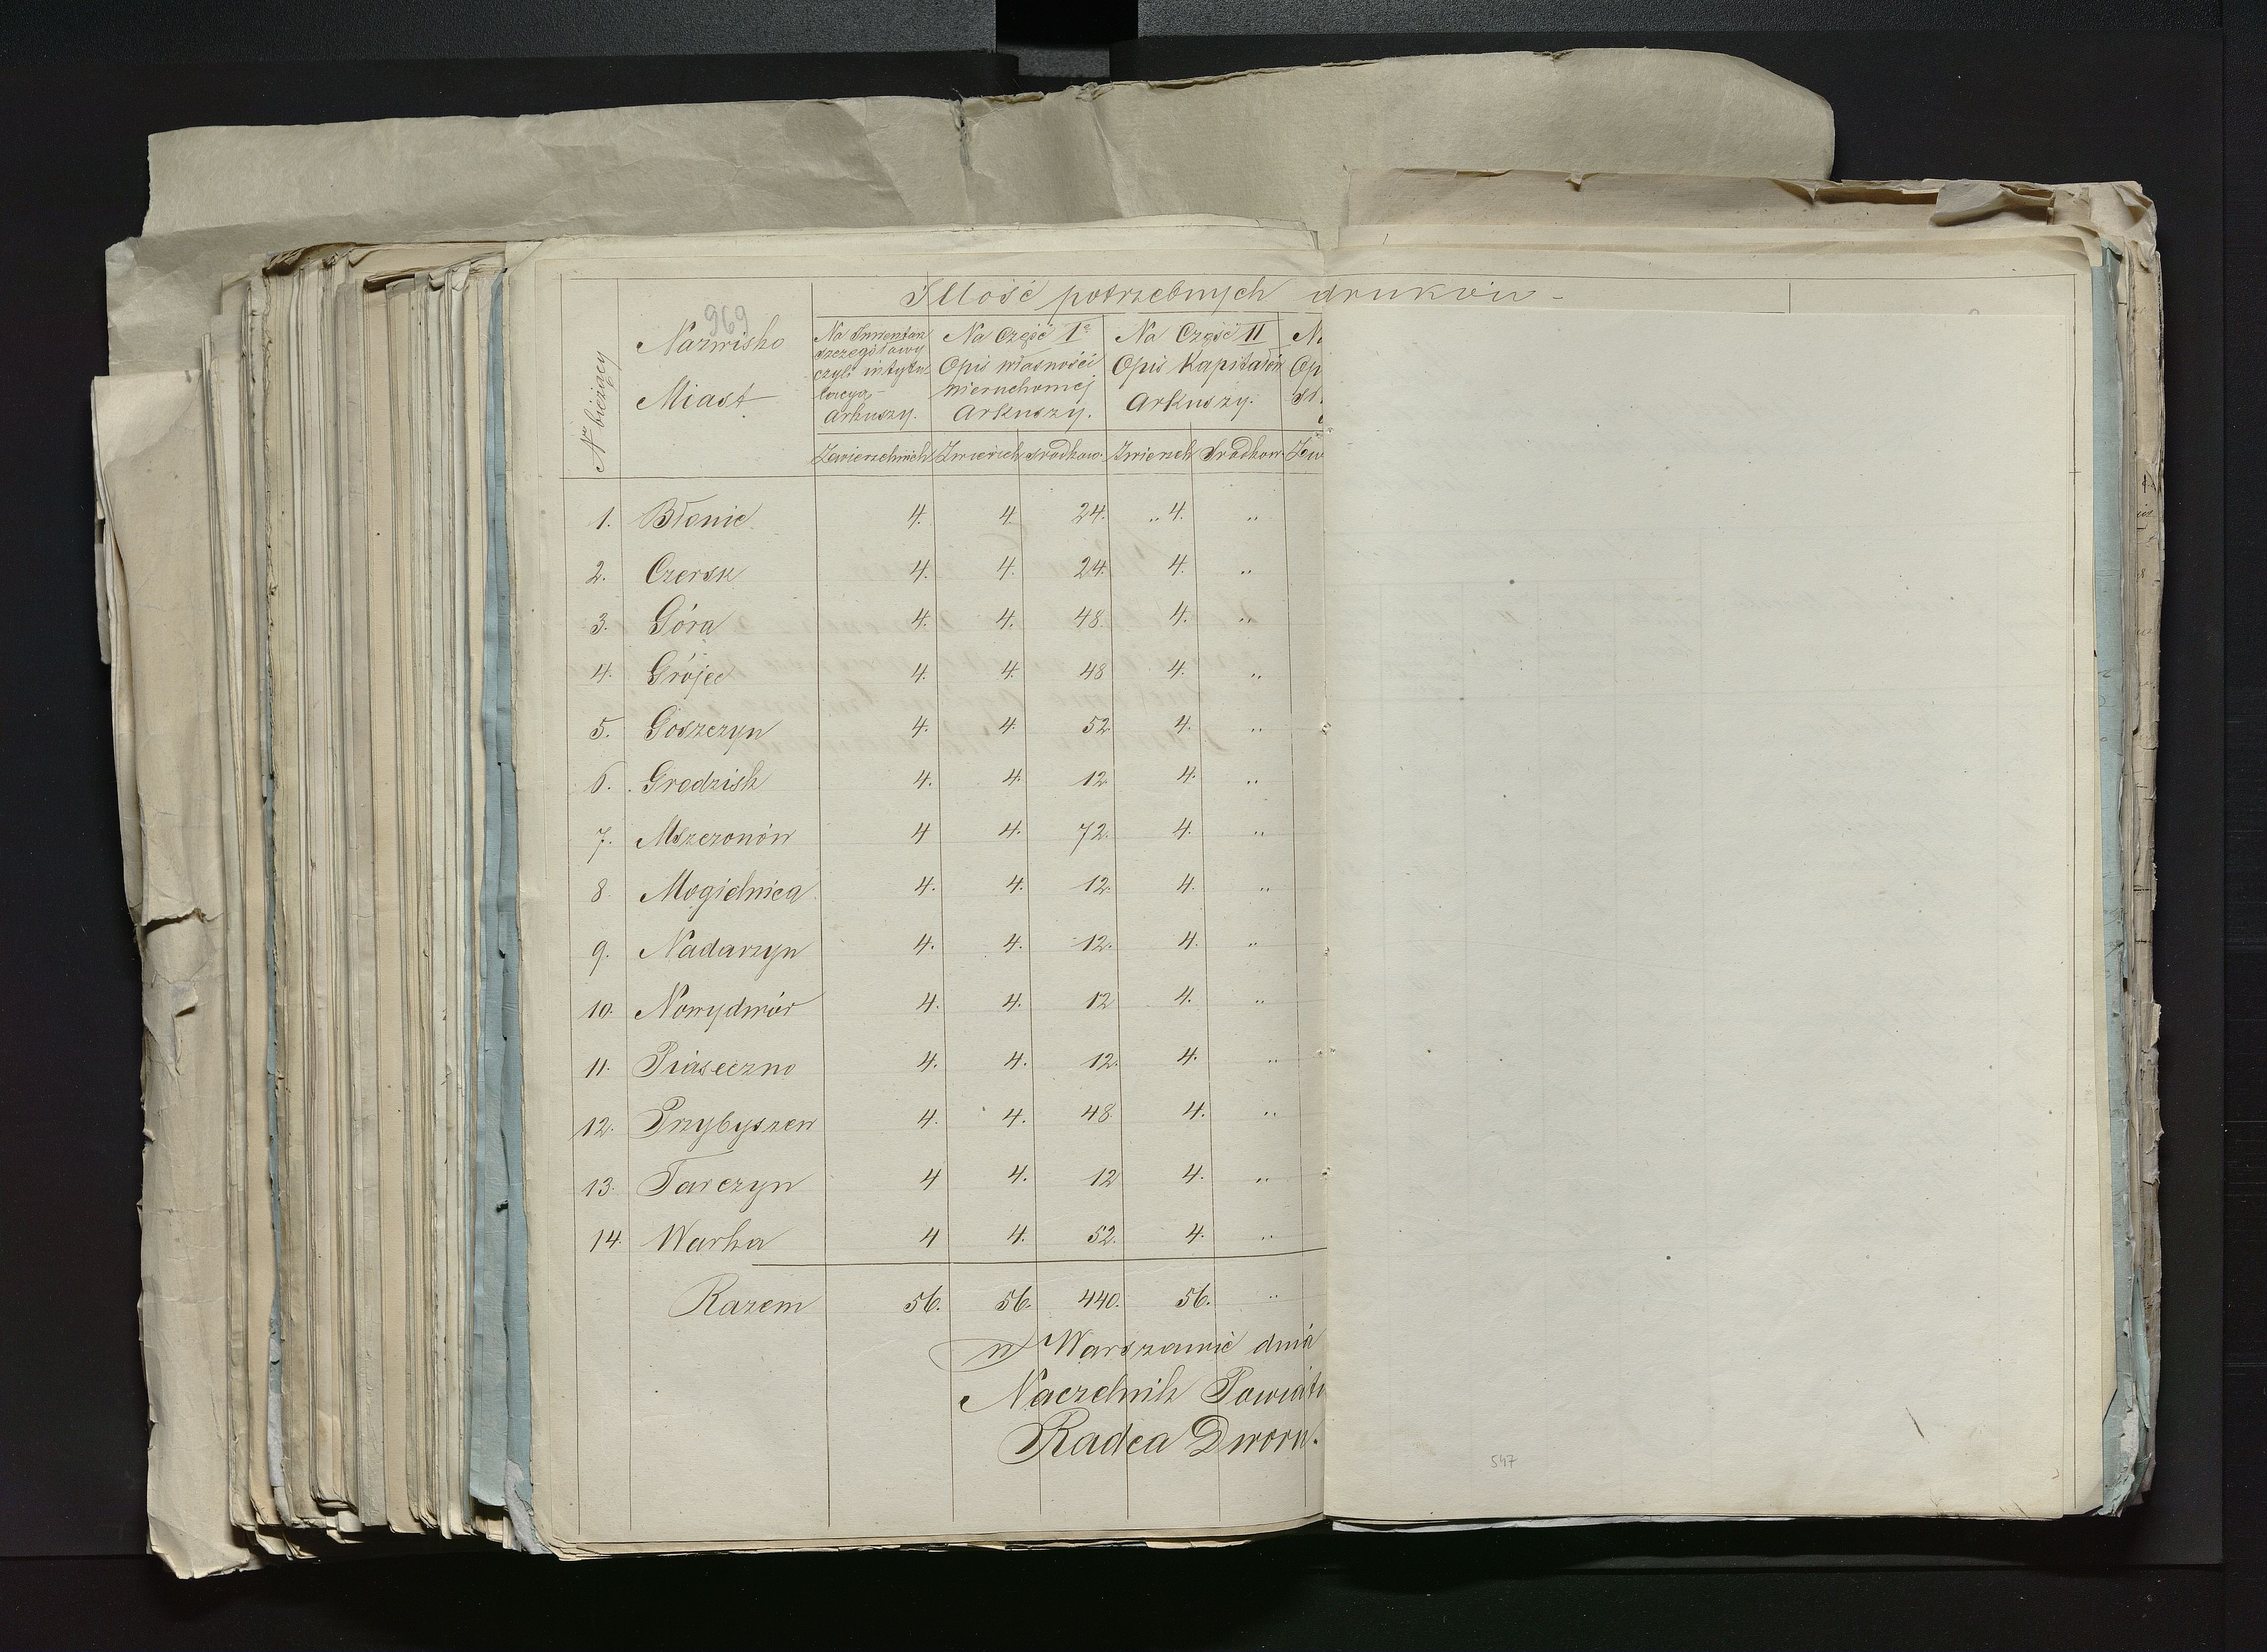 Illość potrzebnych druków -
969
Nr bieżący
Nazwisko
Miast
Na Inwentarz
szczegółowy
czyli intytu-
lacya
arkuszy.
Na Część I
Opis własności
nieruchomej
Arkuszy.
Na Część II
Opis Kapitałów
Arkuszy.
Op
Zwierzchnich Zwierzch srodkow. Zwierzch Srodkow Zw
1. Błonie 4. 4. 24. „ 4. „
2. Czersk 4. 4. 24. 4. „
3. Góra 4. 4. 48. 4. „
4. Grójec 4. 4. 48 4. „
5. Goszczyn 4. 4. 52 4. „
6. Grodzisk 4. 4. 12. 4. „
7. Mszczonów 4 4. 72. 4. „
8 Mogielnica 4. 4. 12. 4. „
9. Nadarzyn 4. 4. 12. 4. „
10. Nowydwór 4. 4. 12 4. „
11. Piaseczno 4. 4. 12. 4. „
12. Przybyszew 4. 4. 48. 4. „
13. Tarczyn 4 4. 12 4. „
14. Warka 4 4. 52. 4. „
Razem 56. 56. 440. 56. „
w Warszawie dnia
Naczelnik Powiatu
Radca Dworu.
547